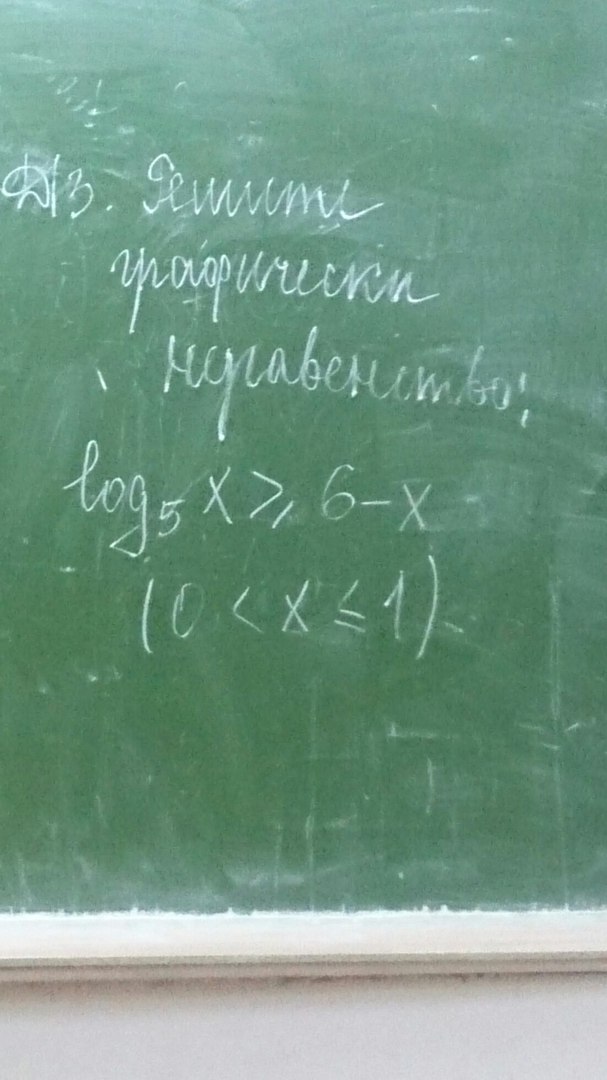 Д/З. Решите
графически
неравенство:
log₅ x ⩾ 6 – x
(0 < x ≤ 1)